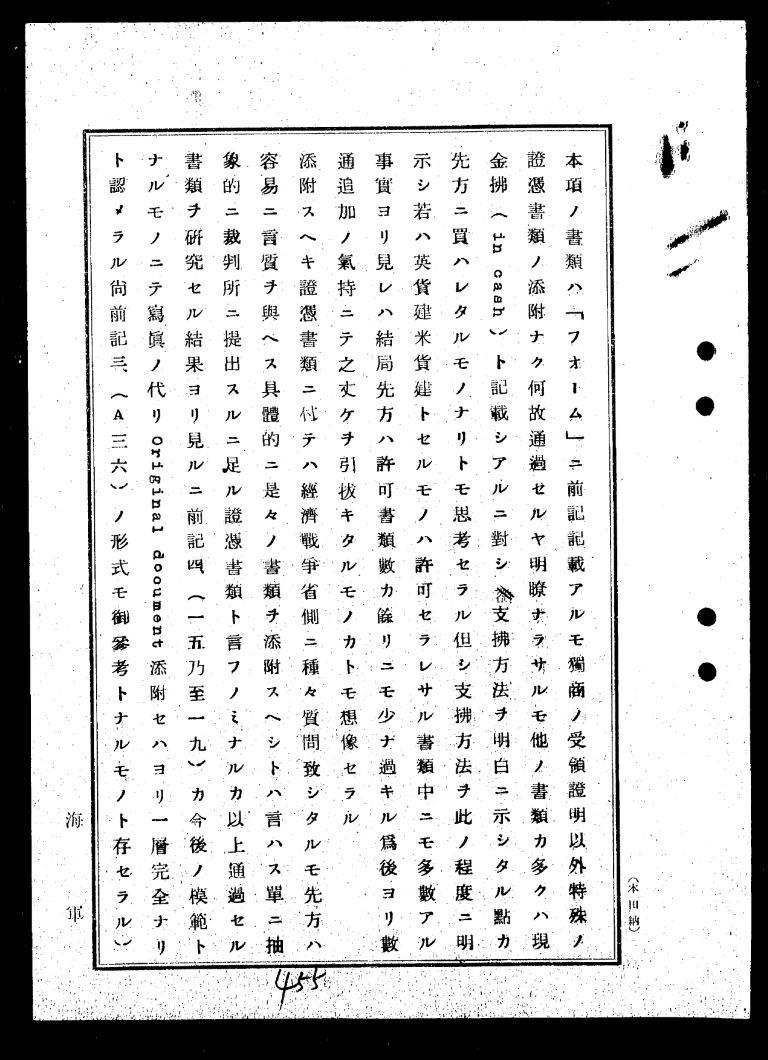 本項ノ書類ハ「フオーム」ニ前記記載アルモ獨商ノ受領證明以外特殊ノ
證憑書類ノ添附ナク何故通過セルヤ明瞭ナラサルモ他ノ書類カ多クハ現
金拂(in cash)ト記載シアルニ對シ支拂方法ヲ明白ニ示シタル點カ
先方ニ買ハレタルモノナリトモ思考セラル但シ支拂方法ヲ此ノ程度ニ明
示シ若ハ英貨建米貨建トセルモノハ許可セラレサル書類中ニモ多數アル
事實ヨリ見レハ結局先方ハ許可書類數カ餘リニモ少ナ過キル爲後ヨリ數
通追加ノ氣持ニテ之丈ケヲ引拔キタルモノカトモ想像セラル
添附スヘキ證憑書類ニ付テハ經濟戰爭省側ニ種々質問致シタルモ先方ハ
容易ニ言質ヲ與ヘス具體的ニ是々ノ書類ヲ添附スヘシトハ言ハス單ニ抽
象的ニ裁判所ニ提出スルニ足ル證憑書類ト言フノミナルカ以上通過セル
書類ヲ硏究セル結果ヨリ見ルニ前記四、(一五乃至一九)カ今後ノ模範ト
ナルモノニテ寫眞ノ代リ Original document 添附セハヨリ一層完全ナリ
ト認メラル尙前記三、(A三六)ノ形式モ御參考トナルモノト存セラル)
海軍
(本田納)
455